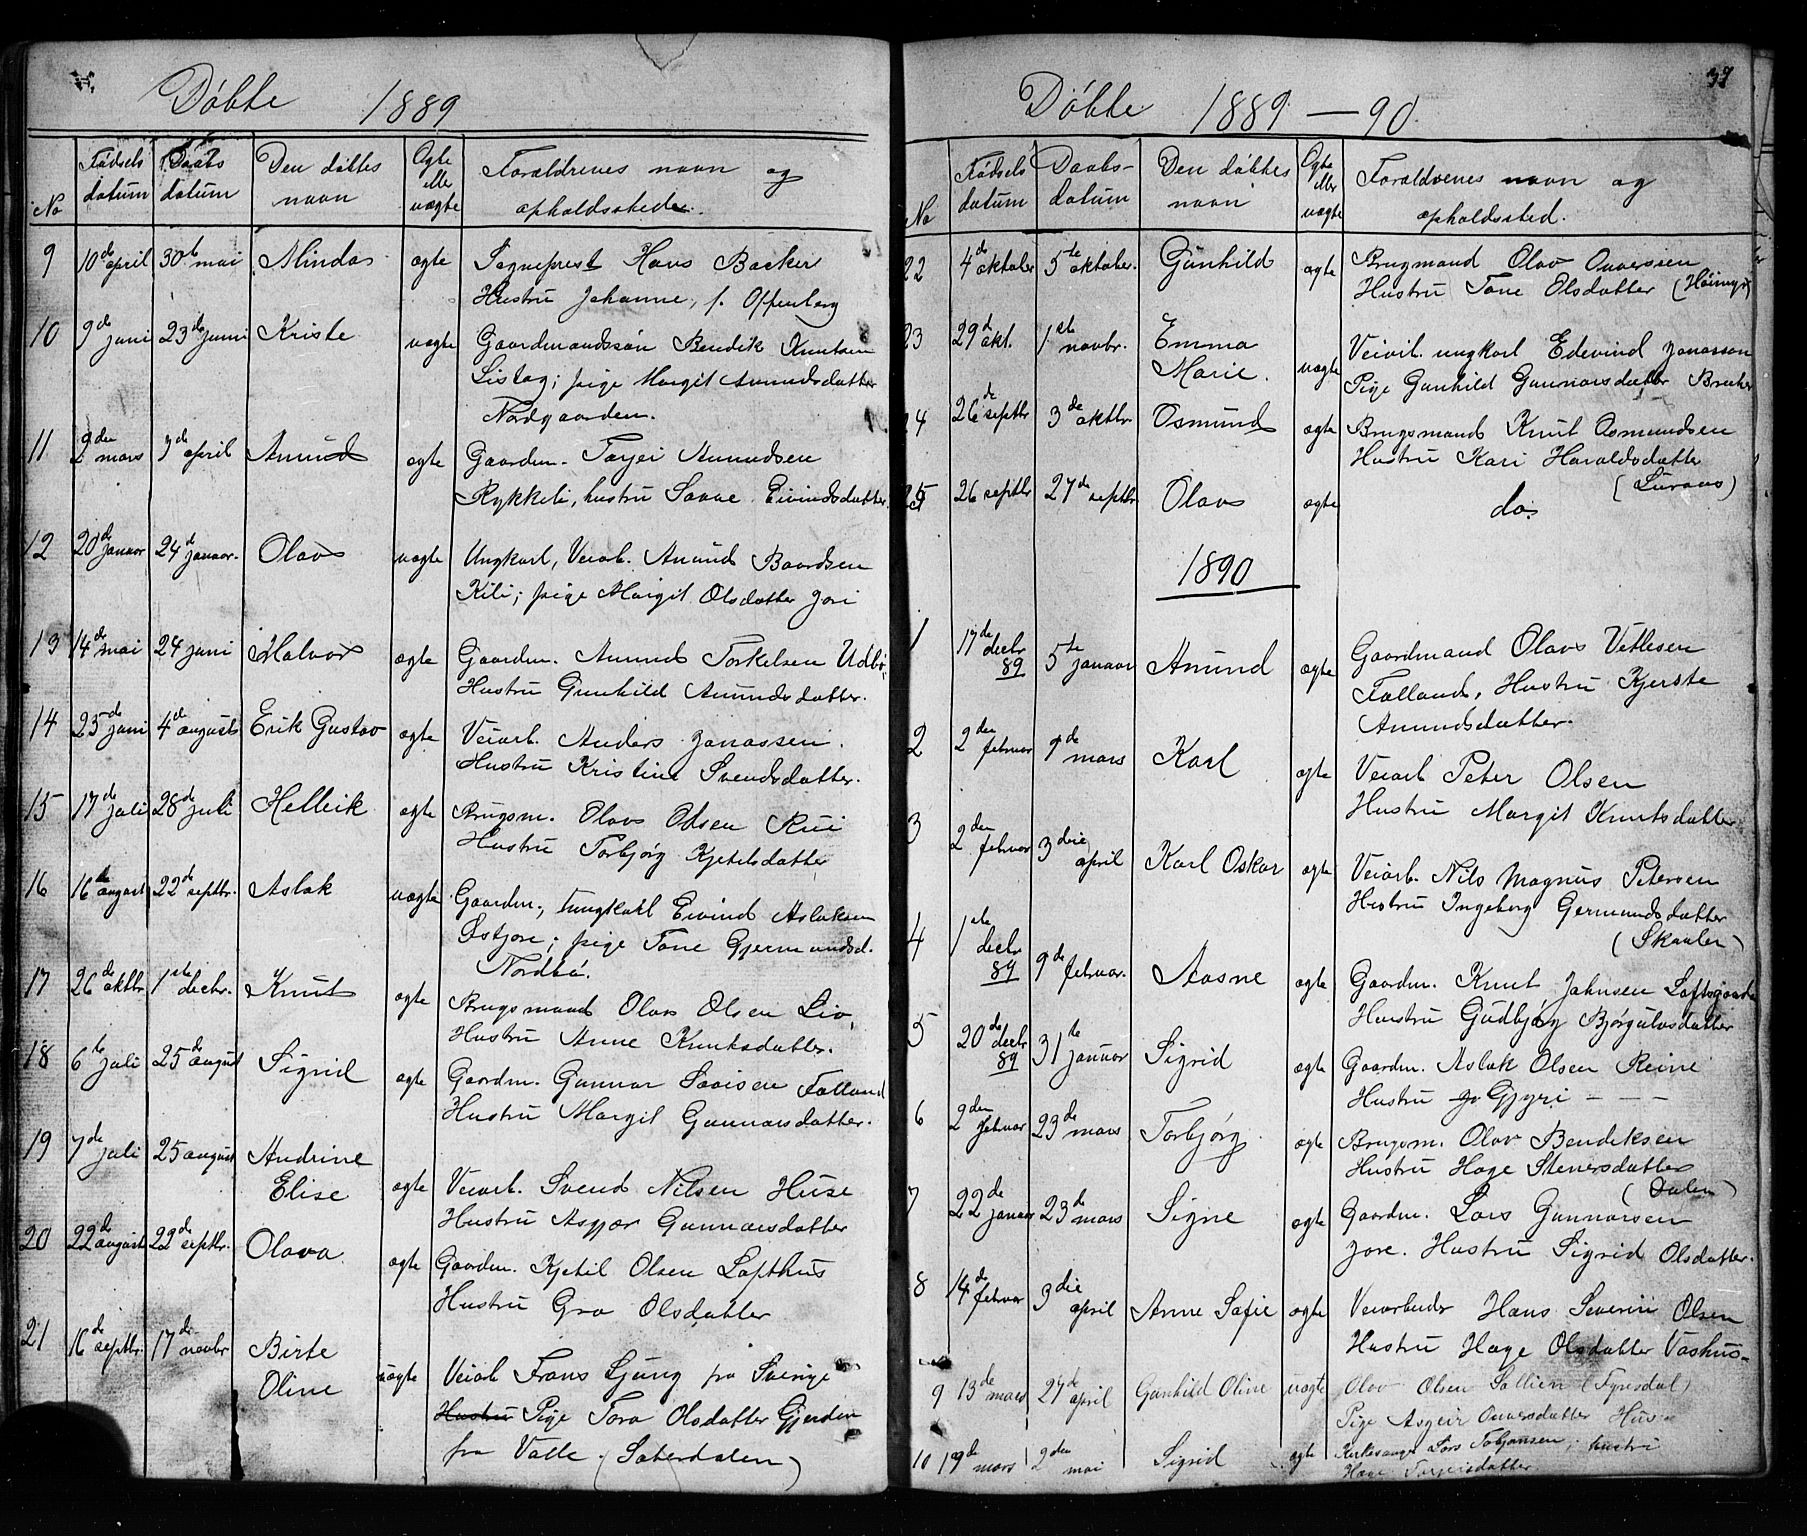 Döbte 1889
No
Fødsels datum
Daabs datum
Den døbtes navn
Ægte eller uægte
Forældrenes navn og opholdssted.
9 10de april 30te mai Alinda ægte Sogneprest Hans Backer
Hustru Johanne, f. Offenberg
10 9de juni 23de juni Kriste uægte Gaardmandssøn Bendik Knutsen
Listøg; pige Margit Anundsdatter
Nordgaarden.
11 2den mars 3de april Anund ægte Gaardm. Tarjei Anundsen
Rykkeli, hustru Savne Eivindsdatter
12 20de januar 24de januar. Olav uægte Ungkarl, Veiarb. Anund Baardsen
Kili; pige Margit Olsdatter Jori
13 14de mai 24 juni Halvor ægte Gaardm. Anund Torkelsen Udbø,
Hustru Gunhild Anundsdatter.
14 25de juni 4de august Erik Gustav ægte Veiarb. Anders Jonassen.
Hustru Kristine Svendsdatter.
15 17de juli 28de juli Helleik ægte Brugsm. Olav Olsen Rui
Hustru Torbjørg Kjetilsdatter
16 16de august 22de septbr. Aslak uægte Gaardm., ungkarl Eivind Aslaksen
Østjore; pige Tone Gjermundsd.
Nordbø.
17 26de oktbr 1ste decbr. Knut ægte Brugsmand Olav Olsen Lio,
Hustru Anne Knutsdatter.
18 6te juli 25de august Sigrid ægte Gaardm. Gunnar Saaisen Falland
Hustru Margit Gunnarsdatter.
19 7de juli 25 august Andrine
Elise ægte Veiarb. Svend Nilsen Huse
Hustru Asgjær Gunnarsdatter
20 22de august 22de septbr. Olava. ægte Gaardm. Kjetil Olsen Lofthus
Hustru Gro Olsdatter
21 16de septbr. 17de novbr Birte
Oline uægte Veiarb Frans Ljung fra Sverige
Hustru Pige Tora Olsdatter Gjerden
fra Valle (Sæterdalen)
Döbte 1889 — 90. 37
No
Fødsels datum
Daabs-datum
Den døbtes navn
Ægte eller uægte
Forældrenes navn og opholdssted.
22 4de oktober 5te oktober. Gunhild ægte Brugmand Olav Onversen
Hustru Tone Olsdatter (Høimyr)
23 29de okt. 1ste novbr. Emma
Marie. uægte Veiarb. ungkarl Edevind Jonasson
Pige Gunhild Gunnarsdatter
24 26de septbr 3de oktbr Osmund ægte Brugsmand Knut Osmundsen
Hustru Kari Haraldsdatter
(Luraas)
25 26 septbr 27de septbr Olav ægte do.
1890
1 17de decbr 89 5te januar Anund ægte Gaardmand Olav Vetlesen
Falland, Hustru Kjerste
Anundsdatter.
2 2den februar 9de mars Karl ægte Veiarb Peter Olsen
Hustru Margit Knutsdatter
3 2den februar 3die april Karl Oskar ægte Veiarb. Nils Magnus Petersen
Hustru Ingeborg Germundsdatter
(Skaalen)
4 1ste decbr 89 9de februar. Aasne ægte Gaardm. Knut Johnsen Loftsgaarde
Hustru Gudbjørg Bjørgulvsdatter
5 20de decbr 89 31te januar Sigrid ægte Gaardm. Aslak Olsen Reine
Hustru Gjyri - - -
6 2den februar 23de mars Torbjørg. ægte Brugsm. Olav Bendiksen
Hustru Hæge Stenersdatter
(Dalen)
7 22de januar 23de mars Signe ægte Gaardm. Lars Gunnarsen
Jore. Hustru Sigrid Olsdatter.
8 14de februar 3die april Anne Sofie ægte Veiarbeider Hans Severin Olsen
Hustru Hæge Olsdatter Vashus-
9 13de mars 27de april Gunhild Oline uægte Olav Olsen Sollien (Fyresdal)
Pige Asgeir Onversdatter Huse
10 19de mars 2den mai Sigrid ægte Kirkesanger Lars Tobjønsen; hustru
Hæge Tarjeisdatter